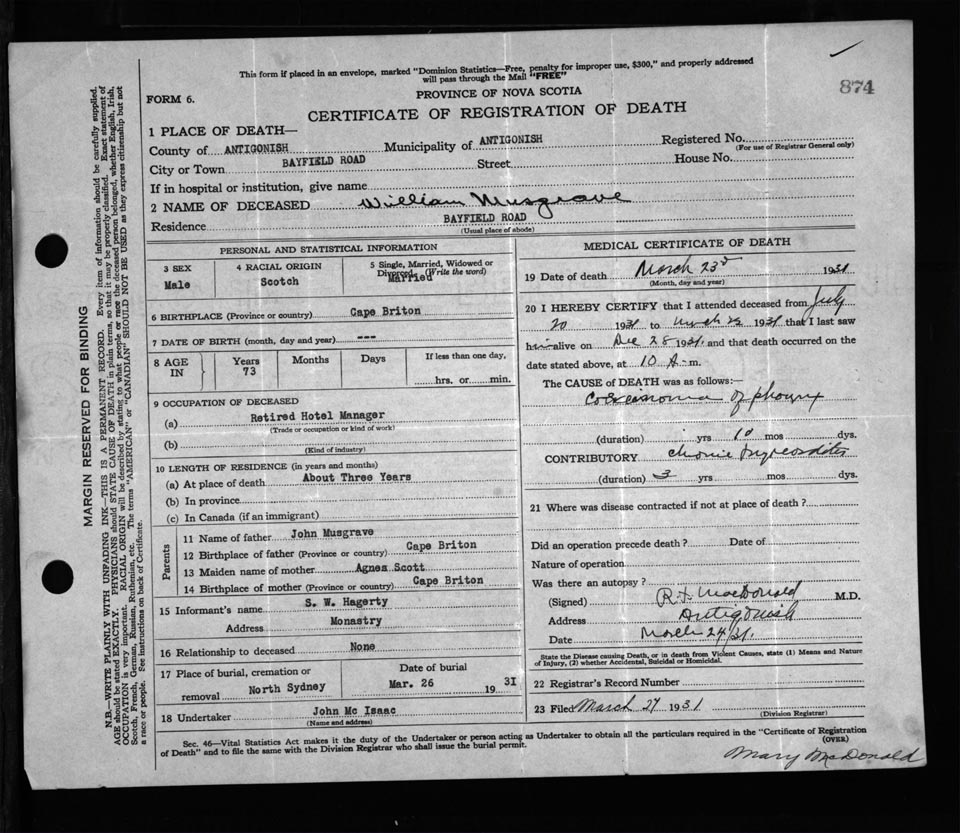 This form if placed in an envelope, marked "Dominion Statistics—Free, penalty for improper use, $300," and properly addressed
will pass through the Mail "FREE"
874
FORM 6.
PROVINCE OF NOVA SCOTIA
CERTIFICATE OF REGISTRATION OF DEATH
1 PLACE OF DEATH—
County of ANTIGONISH Municipality of ANTIGONISH Registered No.
(For use of Registrar General only)
City or Town BAYFIELD ROAD Street House No.
If in hospital or institution, give name
2 NAME OF DECEASED William Musgrave
Residence BAYFIELD ROAD
(Usual place of abode)
PERSONAL AND STATISTICAL INFORMATION
3 SEX
Male
4 RACIAL ORIGIN
Scotch
5 Single, Married, Widowed or
Divorced (Write the word)
Married
6 BIRTHPLACE (Province or country) Cape Briton
7 DATE OF BIRTH (month, day and year) ---
8 AGE IN
Years Months Days If less than one day,
73 hrs. or min.
9 OCCUPATION OF DECEASED
(a) Retired Hotel Manager
(Trade or occupation or kind of work)
(b)
(Kind of industry)
10 LENGTH OF RESIDENCE (in years and months)
(a) At place of death About Three Years
(b) In province
(c) In Canada (if an immigrant)
Parents
11 Name of father John Musgrave
12 Birthplace of father (Province or country) Cape Briton
13 Maiden name of mother Agnes Scott
14 Birthplace of mother (Province or country) Cape Briton
15 Informant's name S. W. Hagerty
Address Monastry
16 Relationship to deceased None
17 Place of burial, cremation or
removal North Sydney
Date of burial
Mar. 26 19 31
18 Undertaker John Mc Isaac
(Name and address)
MEDICAL CERTIFICATE OF DEATH
19 Date of death March 23rd 1931
(Month, day and year)
20 I HEREBY CERTIFY that I attended deceased from July
20 1931 to March 23 1931 that I last saw
him alive on Dec 28 1931, and that death occurred on the
date stated above, at 10 A-m.
The CAUSE of DEATH was as follows:—
of
(duration) yrs 10 mos dys.
CONTRIBUTORY chronic myocarditis
(duration) 3 yrs mos dys.
21 Where was disease contracted if not at place of death?
Did an operation precede death? Date of
Nature of operation
Was there an autopsy?
(Signed) MacDonald M.D.
Address Antigonish
Date March 24/31.
State the Disease causing Death, or in death from Violent Causes, state (1) Means and Nature
of Injury, (2) whether Accidental, Suicidal or Homicidal.
22 Registrar's Record Number
23 Filed March 27 1931
(Division Registrar)
Sec. 46—Vital Statistics Act makes it the duty of the Undertaker or person acting as Undertaker to obtain all the particulars required in the "Certificate of Registration
of Death" and to file the same with the Division Registrar who shall issue the burial permit.
(OVER)
Mary McDonald
MARGIN RESERVED FOR BINDING
N.B.—WRITE PLAINLY WITH UNFADING INK—THIS IS A PERMANENT RECORD. Every item of information should be carefully supplied.
AGE should be stated EXACTLY. PHYSICIANS should STATE CAUSE OF DEATH in plain terms, so that it may be properly classified. Exact statement of
OCCUPATION is very important. RACIAL ORIGIN will be described by stating to what people or race the deceased person belonged, whether English, Irish,
Scotch, French, German, Russian, Ruthenian, etc. The terms "AMERICAN" or "CANADIAN" SHOULD NOT BE USED as they express citizenship but not
a race or people. See instructions on back of Certificate.